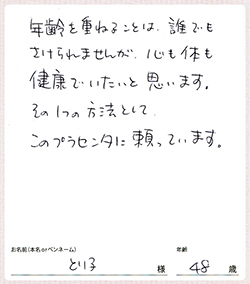 年齢を重ねることは、誰でも
さけられませんが、心も体も
健康でいたいと思います。
その1つの方法として、
このプラセンタに頼っています。
お名前(本名orペンネーム)
年齢
とり子 様 48 歳